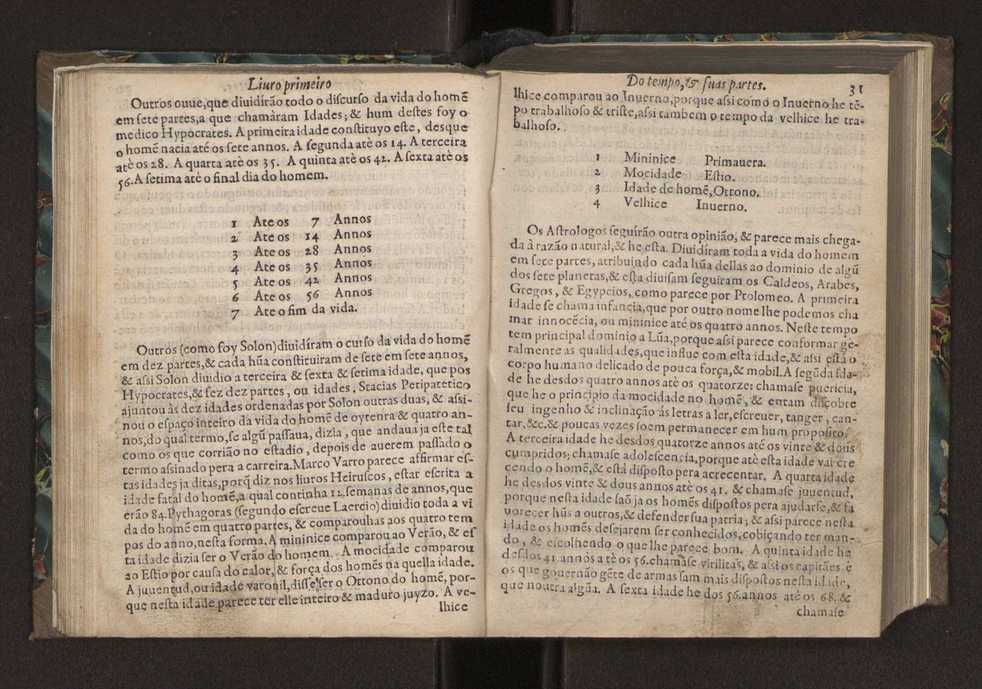 Liuro primeiro
Outros ouue, que diuidirão todo o discurso da vida do homẽ
em sete partes, a que chamàram Idades; & hum destes foy o
medico Hypocrates. A primeira idade constituyo este, desque
o homẽ nacia atè os sete annos. A segunda atè os 14. A terceira
atè os 28. A quarta atè os 35. A quinta atè os 42. A sexta atè os
56. A setima atè o final dia do homem.
1 Ate os 7 Annos
2 Ate os 14 Annos
3 Ate os 28 Annos
4 Ate os 35 Annos
5 Ate os 42 Annos
6 Ate os 56 Annos
7 Ate o fim da vida.
Outros (como foy Solon) diuidiram o curso da vida do homẽ
em dez partes, & cada hũa constituiram de sete em sete annos,
& assi Solon diuidio a terceira & sexta & setima idade, que pos
Hypocrates, & fez dez partes, ou idades, Stacias Peripatetico
ajuntou às dez idades ordenadas por Solon outras duas, & assi-
nou o espaço inteiro da vida do homẽ de oytenta & quatro an-
nos, do qual termo, se algũ passaua, dizia, que andaua ja este tal
como os que corrião no estadio, depois de auerem passado o
termo asinado pera a carreira. Marco Varro parece affirmar es-
tas idades ja ditas, porq̃ diz nos liuros Heiruscos, estar escrita a
idade fatal do homẽ, a qual continha 12. semanas de annos, que
erão 84. Pythagoras (segundo escreue Laercio) diuidio toda a vi
da do homẽ em quatro partes, & comparouhas aos quatro tem
pos do anno, nesta forma. A mininice comparou ao Verão, & es
ta idade dizia ser o Verão do homem. A mocidade comparou
ao Estio por causa do calor, & força dos homẽs na quella idade.
A juuentud, ou idade varonil, disse ser o Ottono do homẽ, por-
que nesta idade parece ter elle inteiro & maduro juyzo. A ve-
lhice
Do tempo, & suas partes. 31
lhice comparou ao Inuerno, porque assi como o Inuerno he tẽ-
po trabalhoso & triste, assi tambem o tempo da velhice he tra-
balhoso.
1 Mininice Primauera.
2 Mocidade Estio.
3 Idade de homẽ, Ottono.
4 Velhice Inuerno.
Os Astrologos seguirão outra opinião, & parece mais chega-
da à razão natural, & he esta. Diuidiram toda a vida do homem
em sete partes, atribuindo cada hũa dellas ao dominio de algũ
dos sete planetas, & esta diuisam seguiram os Caldeos, Arabes,
Gregos, & Egypcios, como parece por Ptolomeo. A primeira
idade se chama infancia, que por outro nome lhe podemos cha
mar innocẽcia, ou mininice atè os quatro annos. Neste tempo
tem principal dominio a Lũa, porque assi parece conformar ge-
ralmente as qualidades, que influe com esta idade, & assi està o
corpo humano delicado de pouca força, & mobil. A segũda ida-
de he desdos quatro annos atè os quatorze: chamase puericia,
que he o principio da mocidade no homẽ, & entam discobre
seu ingenho & inclinação às letras a ler, escreuer, tanger, can-
tar, &c. & poucas vezes soem permanecer em hum proposito.
A terceira idade he desdos quatorze annos atè os vinte & dous
cumpridos; chamase adolescencia, porque atè esta idade vai cre
cendo o homẽ, & està disposto pera acrecentar. A quarta idade
he desdos vinte & dous annos atè os 41. & chamase juuentud,
porque nesta idade saõ ja os homẽs dispostos pera ajudarse, & fa
uorecer hũs a outros, & defender sua patria; & assi parece nesta
idade os homẽs desejarem ser conhecidos, cobiçando ter man-
do, & escolhendo o que lhe parece bom. A quinta idade he
desdos 41 annos atè os 56. chamase virilitas, & assi os capitães e
os que gouernão gẽte de armas sam mais dispostos nesta idade,
que noutra algũa. A sexta idade he dos 56. annos atè os 68. &
chamase